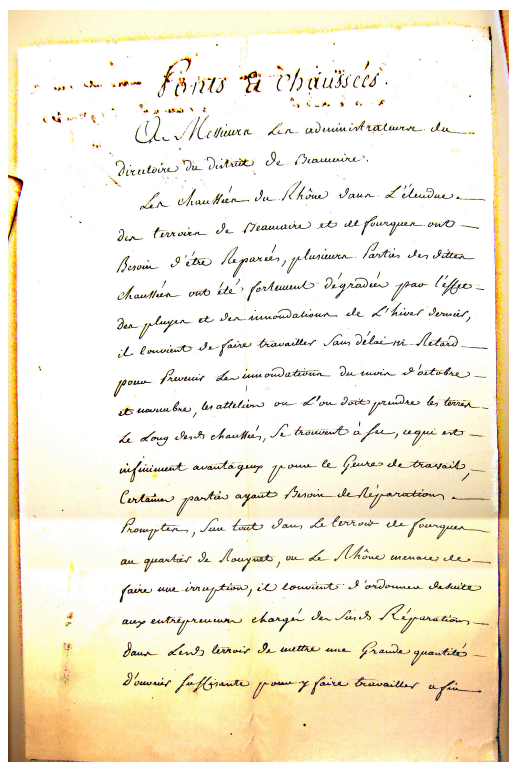 Ponts & chaussées.
A Messieurs Les administrateurs du
directoire du district de Beaucaire.
Les chaussées du Rhône dans L'étendue
des terroirs de Beaucaire et de fourques ont
Besoin d'être Reparées, plusieurs Parties des dittes
chaussées ont été fortement dégradées par l'effet
des pluyes et des innondations de L'hiver dernier,
il convient de faire travailler Sans délai ni Retard
pour Prevenir Les innondations du mois d'octobre
et novembre, les atteliers ou L'on doit prendre les terres
Le Long desds chaussées, Se trouvent à Sec, ce qui est
infiniment avantageux pour le Genre de travail,
Certaines parties ayant Besoin de Réparations
Promptes, Sur tout dans Le terroir de fourques
au quartier de Rouynet, ou Le Rhône menace de
faire une irruption, il convient d'ordonner de suite
aux entrepreneurs chargés des Susds Réparations
dans Lesds terroir de mettre une Grande quantité
d'ouvriers Suffisante pour y faire travailler afin